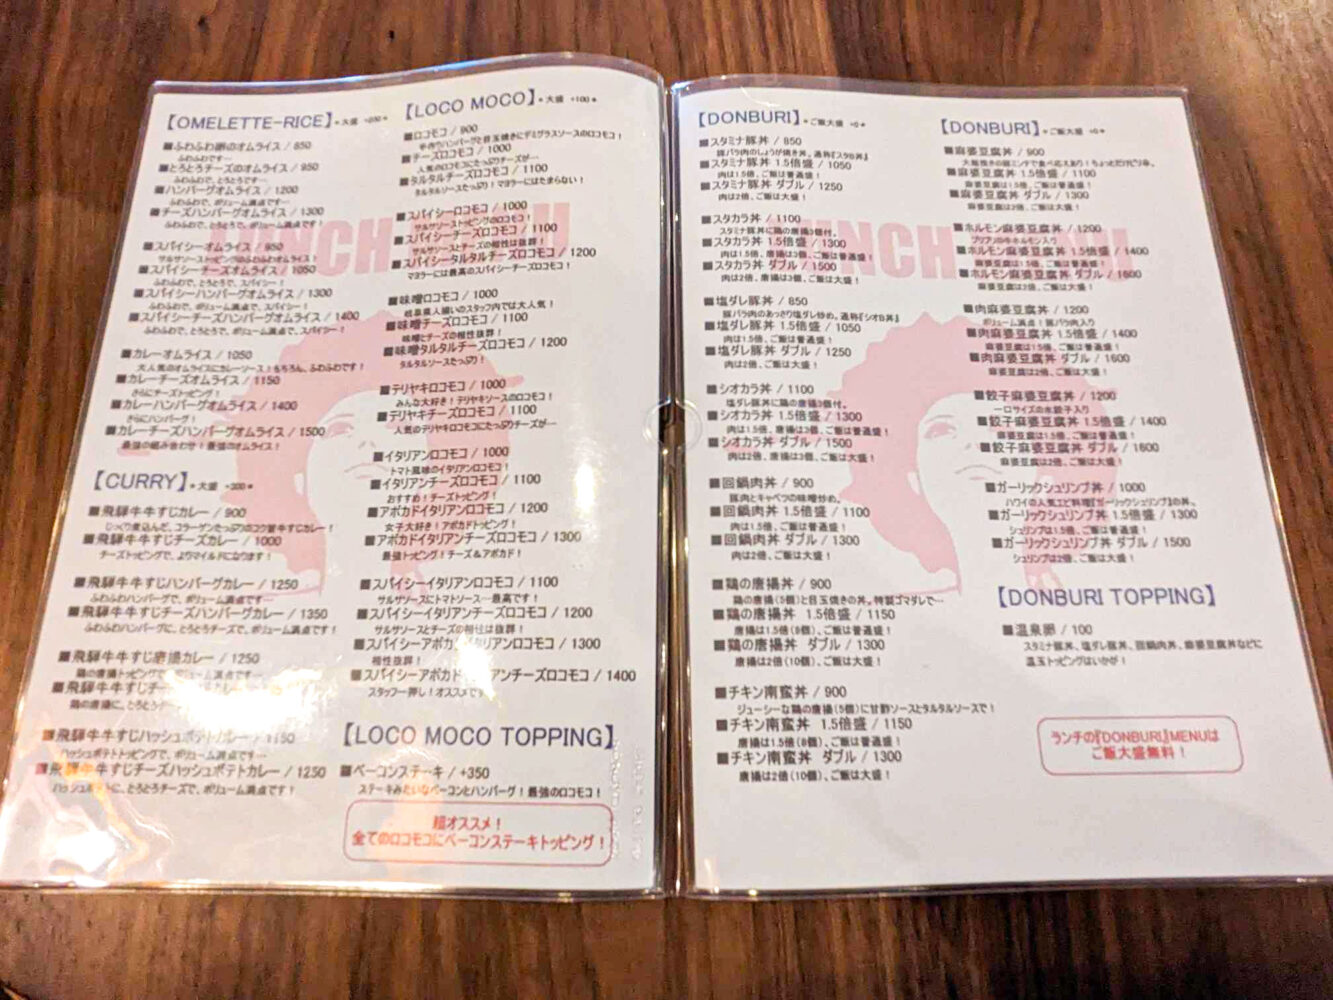 【OMELETTE-RICE】
■ふわふわ卵のオムライス / 850
ふわふわです…
■とろとろチーズのオムライス / 950
ふわふわで、とろとろです…
■ハンバーグオムライス / 1200
ふわふわで、ボリューム満点です…
■チーズハンバーグオムライス / 1300
ふわふわで、とろとろで、ボリューム満点です！
■スパイシーオムライス / 950
サルサソーストッピングのふわふわオムライス！
■スパイシーチーズオムライス / 1050
ふわふわで、とろとろで、スパイシー！
■スパイシーハンバーグオムライス / 1300
ふわふわで、ボリューム満点で、スパイシー！
■スパイシーチーズハンバーグオムライス / 1400
ふわふわで、とろとろで、ボリューム満点で、スパイシー！
■カレーオムライス / 1050
大人気のオムライスにカレーソース！もちろん、ふわふわです！
■カレーチーズオムライス / 1150
さらにチーズトッピング！
■カレーハンバーグオムライス / 1400
さらにハンバーグ！
■カレーチーズハンバーグオムライス / 1500
最強の組み合わせ！最強のオムライス！
【CURRY】*大盛 +300*
■飛騨牛牛すじカレー / 900
じっくり煮込んだ、コラーゲンたっぷりのコク旨牛すじカレー！
■飛騨牛牛すじチーズカレー / 1000
チーズトッピングで、よりマイルドになります！
■飛騨牛牛すじハンバーグカレー / 1250
ふわふわハンバーグで、ボリューム満点です…
■飛騨牛牛すじチーズハンバーグカレー / 1350
ふわふわハンバーグに、とろとろチーズで、ボリューム満点です！
■飛騨牛牛すじ唐揚カレー / 1250
鶏の唐揚トッピングで、ボリューム満点です…
■飛騨牛牛すじチーズ
鶏の唐揚に、とろとろチーズで、ボリューム満点です！
■飛騨牛牛すじハッシュポテトカレー / 1150
ハッシュポテトトッピングで、ボリューム満点です…
■飛騨牛牛すじチーズハッシュポテトカレー / 1250
ハッシュポテトに、とろとろチーズで、ボリューム満点です！
【LOCO MOCO】*大盛 +100*
■ロコモコ / 900
手作りハンバーグと目玉焼きにデミグラスソースのロコモコ！
■チーズロコモコ / 1000
人気のロコモコにたっぷりチーズが…
■タルタルチーズロコモコ / 1100
タルタルソースたっぷり！マヨラーにはたまらない！
■スパイシーロコモコ / 1000
サルサソーストッピングのロコモコ！
■スパイシーチーズロコモコ / 1100
サルサソースとチーズの相性は抜群！
■スパイシータルタルチーズロコモコ / 1200
マヨラーには最高のスパイシーチーズロコモコ！
■味噌ロコモコ / 1000
岐阜県人揃いのスタッフ内では大人気！
■味噌チーズロコモコ / 1100
味噌とチーズの相性は抜群！
■味噌タルタルチーズロコモコ / 1200
タルタルソースたっぷり！
■テリヤキロコモコ / 1000
みんな大好き！テリヤキソースのロコモコ！
■テリヤキチーズロコモコ / 1100
人気のテリヤキロコモコにたっぷりチーズが…
■イタリアンロコモコ / 1000
トマト風味のイタリアンロコモコ！
■イタリアンチーズロコモコ / 1100
おすすめ！チーズトッピング！
■アボカドイタリアンロコモコ / 1200
女子大好き！アボカドトッピング！
■アボカドイタリアンチーズロコモコ / 1300
最強トッピング！チーズ＆アボカド！
■スパイシーイタリアンロコモコ / 1100
サルサソースにトマトソース…最高です！
■スパイシーイタリアンチーズロコモコ / 1200
サルサソースとチーズの相性は抜群！
■スパイシーアボカドイタリアンロコモコ / 1300
相性抜群！
■スパイシーアボカドイタリアンチーズロコモコ / 1400
スタッフ一押し！オススメです
【LOCO MOCO TOPPING】
■ベーコンステーキ / +350
ステーキみたいなベーコンとハンバーグ！最強のロコモコ！
超オススメ！
全てのロコモコにベーコンステーキトッピング！
【DONBURI】*ご飯大盛 +0*
■スタミナ豚丼 / 850
豚バラ肉のしょうが焼き丼。通称『スタB丼』
■スタミナ豚丼 1.5倍盛 / 1050
肉は1.5倍、ご飯は普通盛！
■スタミナ豚丼 ダブル / 1250
肉は2倍、ご飯は大盛！
■スタカラ丼 / 1100
スタミナ豚丼に鶏の唐揚3個付。
■スタカラ丼 1.5倍盛 / 1300
肉は1.5倍、唐揚は3個、ご飯は普通盛！
■スタカラ丼 ダブル / 1500
肉は2倍、唐揚は3個、ご飯は大盛！
■塩ダレ豚丼 / 850
豚バラ肉のあっさり塩ダレ炒め。通称『シオB丼』
■塩ダレ豚丼 1.5倍盛 / 1050
肉は1.5倍、ご飯は普通盛！
■塩ダレ豚丼 ダブル / 1250
肉は2倍、ご飯は大盛！
■シオカラ丼 / 1100
塩ダレ豚丼に鶏の唐揚3個付。
■シオカラ丼 1.5倍盛 / 1300
肉は1.5倍、唐揚は3個、ご飯は普通盛！
■シオカラ丼 ダブル / 1500
肉は2倍、唐揚は3個、ご飯は大盛！
■回鍋肉丼 / 900
豚肉とキャベツの味噌炒め。
■回鍋肉丼 1.5倍盛 / 1100
肉は1.5倍、ご飯は普通盛！
■回鍋肉丼 ダブル / 1300
肉は2倍、ご飯は大盛！
■鶏の唐揚丼 / 900
鶏の唐揚(5個)と目玉焼きの丼。特製ゴマダレで…
■鶏の唐揚丼 1.5倍盛 / 1150
唐揚は1.5倍(8個)、ご飯は普通盛！
■鶏の唐揚丼 ダブル / 1300
唐揚は2倍(10個)、ご飯は大盛！
■チキン南蛮丼 / 900
ジューシーな鶏の唐揚(5個)に甘酢ソースとタルタルソースで！
■チキン南蛮丼 1.5倍盛 / 1150
唐揚は1.5倍(8個)、ご飯は普通盛！
■チキン南蛮丼 ダブル / 1300
唐揚は2倍(10個)、ご飯は大盛！
【DONBURI】*ご飯大盛 +0*
■麻婆豆腐丼 / 900
■麻婆豆腐丼 1.5倍盛 / 1100
麻婆豆腐は1.5倍、ご飯は普通盛！
■麻婆豆腐丼 ダブル / 1300
麻婆豆腐は2倍、ご飯は大盛！
■ホルモン麻婆豆腐丼 / 1200
プリプリの牛ホルモン入り
■ホルモン麻婆豆腐丼 1.5倍盛 / 1400
麻婆豆腐は1.5倍、ご飯は普通盛！
■ホルモン麻婆豆腐丼 ダブル / 1600
麻婆豆腐は2倍、ご飯は大盛！
■肉麻婆豆腐丼 / 1200
ボリューム満点！豚バラ肉入り
■肉麻婆豆腐丼 1.5倍盛 / 1400
麻婆豆腐は1.5倍、ご飯は普通盛！
■肉麻婆豆腐丼 ダブル / 1600
麻婆豆腐は2倍、ご飯は大盛！
■餃子麻婆豆腐丼 / 1200
一口サイズの水餃子入り
■餃子麻婆豆腐丼 1.5倍盛 / 1400
麻婆豆腐は1.5倍、ご飯は普通盛！
■餃子麻婆豆腐丼 ダブル / 1600
麻婆豆腐は2倍、ご飯は大盛！
■ガーリックシュリンプ丼 / 1000
ハワイの人気エビ料理『ガーリックシュリンプ』の丼。
■ガーリックシュリンプ丼 1.5倍盛 / 1300
シュリンプは1.5倍、ご飯は普通盛！
■ガーリックシュリンプ丼 ダブル / 1500
シュリンプは2倍、ご飯は大盛！
【DONBURI TOPPING】
■温泉卵 / 100
スタミナ豚丼、塩ダレ豚丼、回鍋肉丼、麻婆豆腐丼などに
温玉トッピングはいかが！
ランチの『DONBURI』MENUは
ご飯大盛無料！